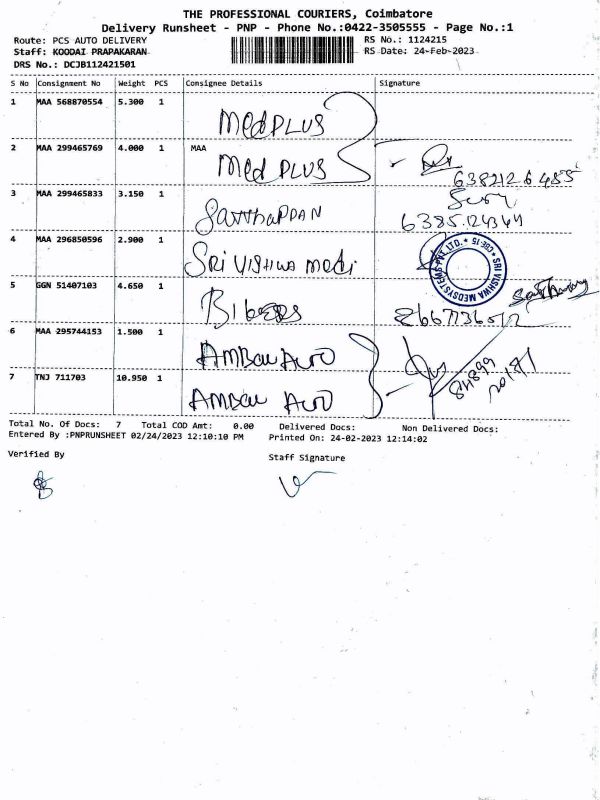 THE PROFESSIONAL COURIERS, Coimbatore
Delivery Runsheet - PNP - Phone No.:0422-3505555 - Page No.:1
Route: PCS AUTO DELIVERY RS No.: 1124215
Staff: KOODAI PRAPAKARAN RS Date: 24-Feb-2023
DRS No.: DCJB112421501
S No Consignment No Weight PCS Consignee Details Signature
1 MAA 568870554 5.300 1 MedPLUS
2 MAA 299465769 4.000 1 MAA Med PLUS
3 MAA 299465833 3.150 1
4 MAA 296850596 2.900 1 SRi VISHWA medi
SRI VISHWA MEDSYSTEMS PVT.LTD. * CBE-15 *
5 GGN 51407103 4.650 1
6 MAA 295744153 1.500 1 AMBAL AUTO
7 TNJ 711703 10.950 1 AMBAL AUTO
Total No. Of Docs: 7 Total COD Amt: 0.00 Delivered Docs: Non Delivered Docs:
Entered By :PNPRUNSHEET 02/24/2023 12:10:10 PM Printed On: 24-02-2023 12:14:02
Verified By Staff Signature